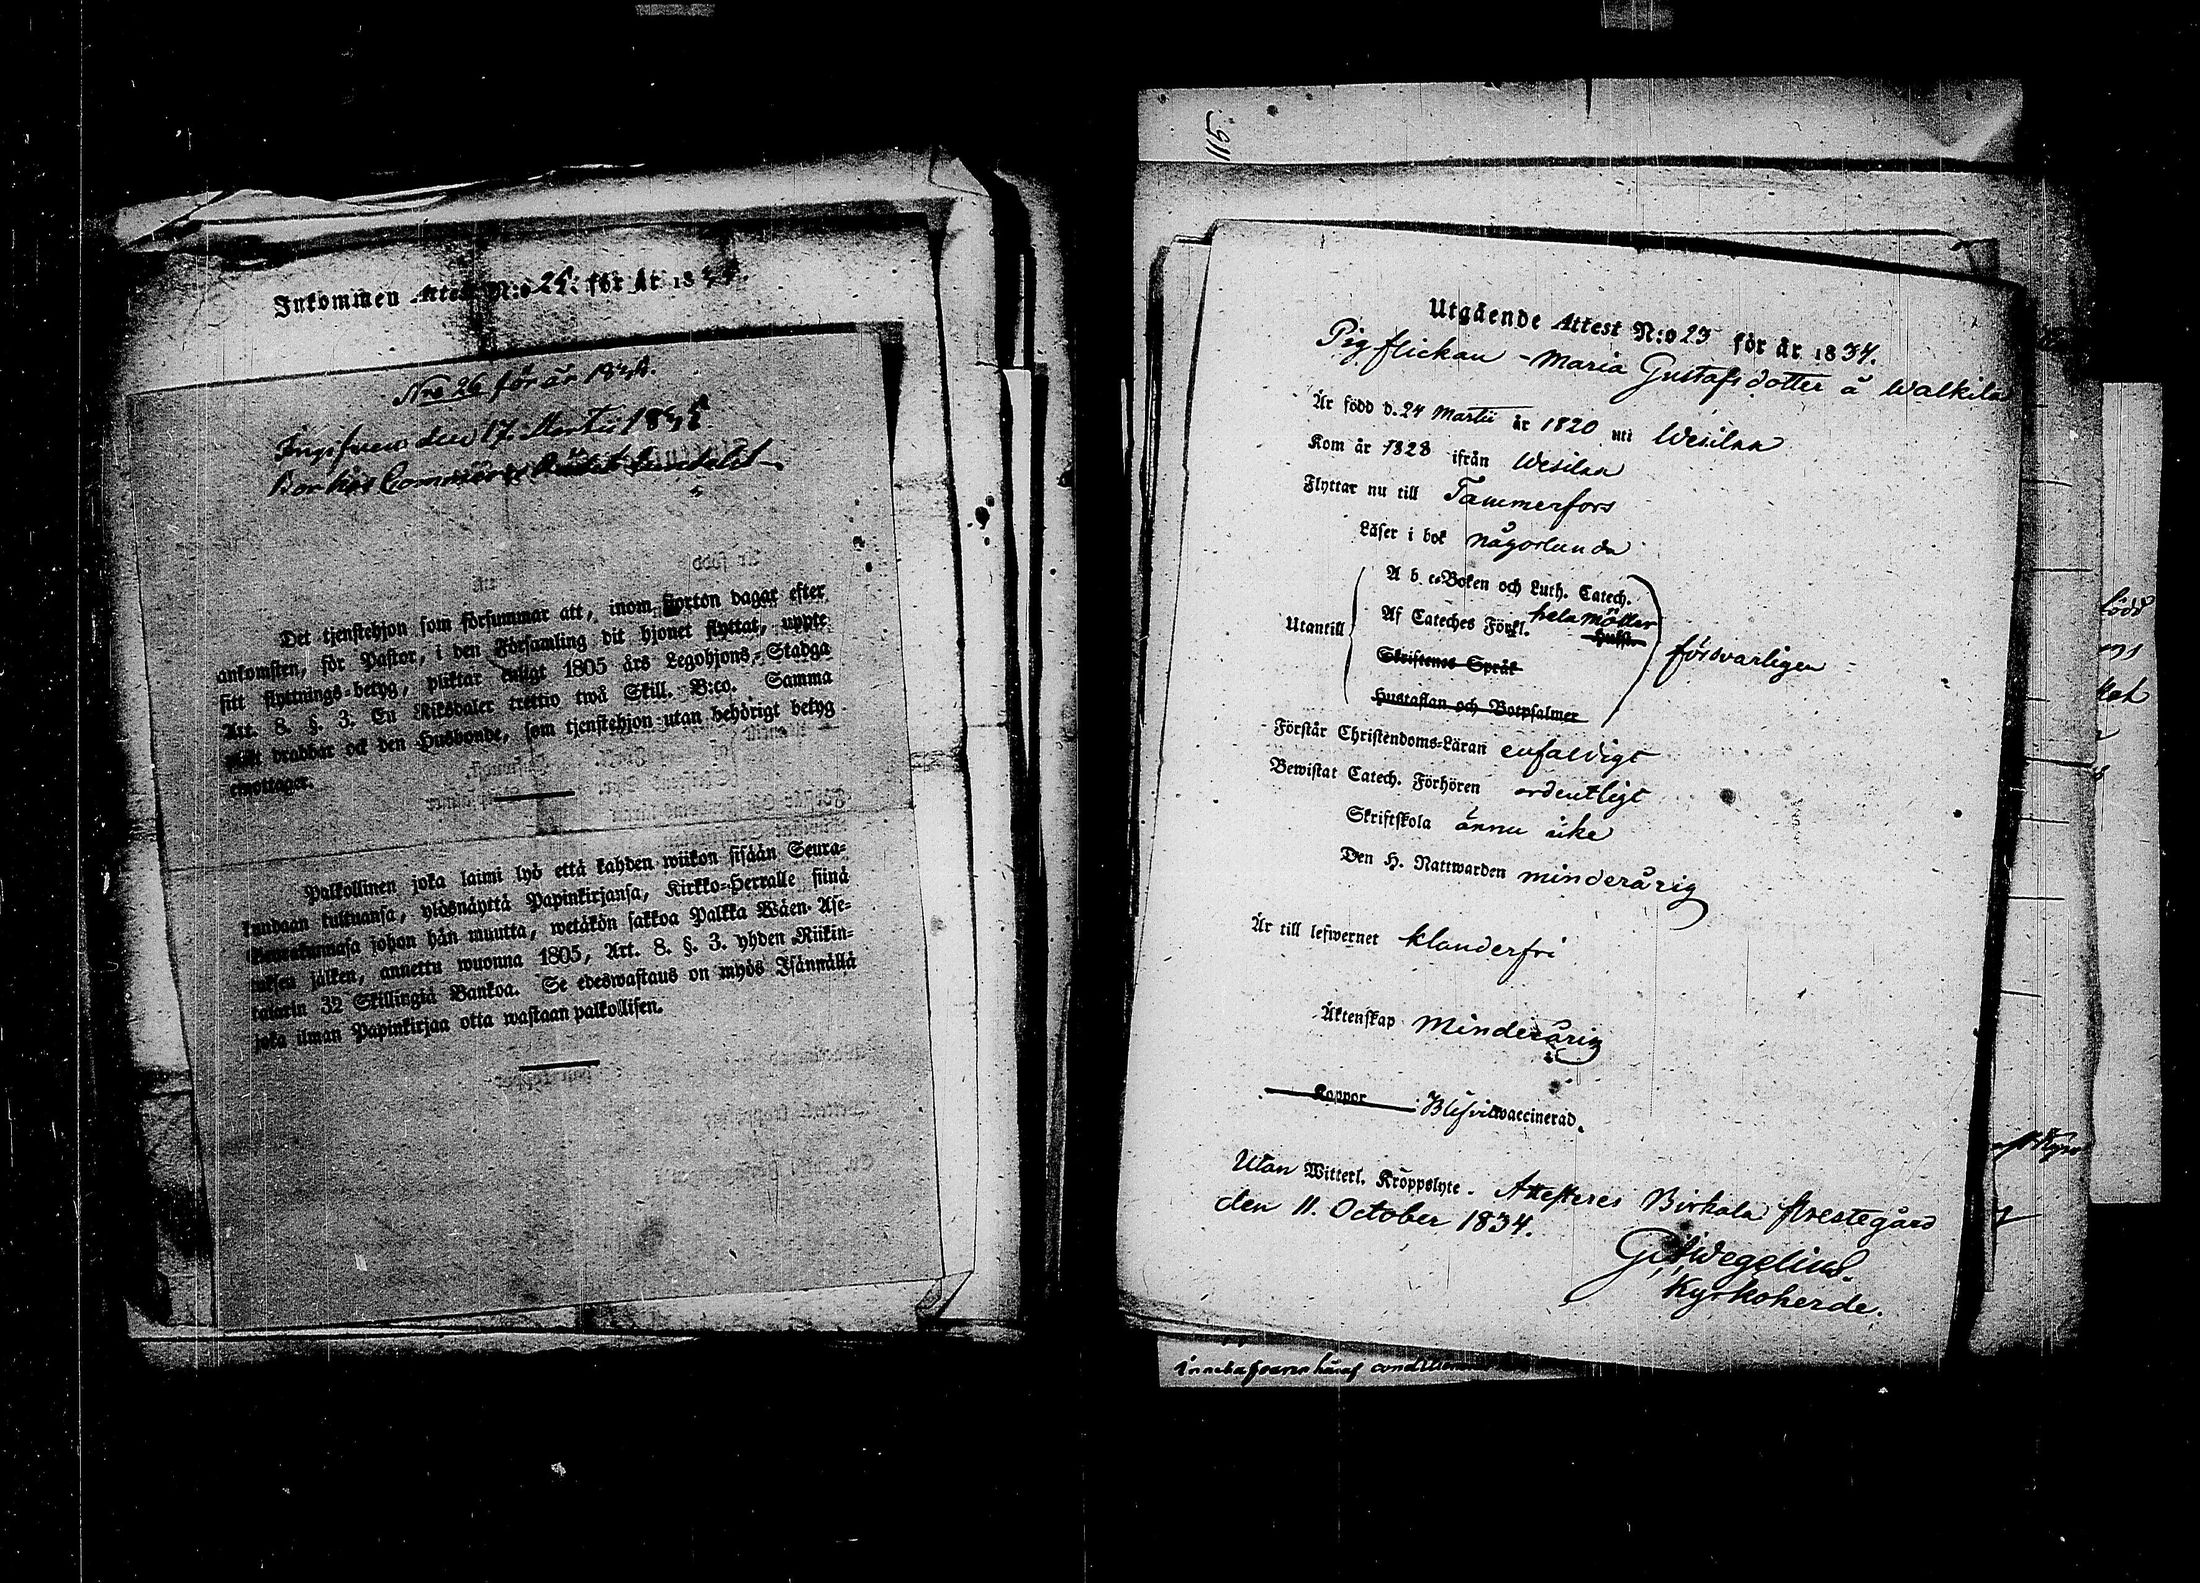 Inkommen Attest N:o 24. för år 18
Nro 26 för år 18
den 17. Martii 18
Bor hos
Det tjenstehjon som försummar att, inom fjorton dagar efter
ankomsten, för Pastor, i den Församling dit hjonet flyttat, uppte
sitt flyttnings-betyg, pliktar enligt 1805 års Legohjons-Stadga
Art. 8. §. 3. En Riksdaler trettio twå Skill. B:co. Samma
plikt drabbar ock den Husbonde, som tjenstehjon utan behörigt betyg
emottager.
Palkollinen joka laimi lyö että kahden wiikon sisään Seura-
kundaan tultuansa, ylösnäyttä Papinkirjansa, Kirkko-Herralle siinä
Seurakunnasa johon hän muutta, wetäkön sakkoa Palkka Wäen Ase-
tuksen jälken, annettu wuonna 1805, Art. 8. §. 3. yhden Riikin-
talarin 32 Skillingiä Bankoa. Se edeswastaus on myös Isännällä
joka ilman Papinkirjaa otta wastaan palkollisen.
116
Utgående Attest N:o 23 för år 1834.
Pigflickan - Maria Gustafsdotter å Walkila
Är född d. 24 Martii år 1820 uti Wesilax
Kom år 1828 ifrån Wesilax
Flyttar nu till Tammerfors
Läser i bok någorlunda
A b c-Boken och Luth. Catech.
Af Cateches Förkl. hela möter
Utantill försvarligen
Skriftenes Språk
Hustaflan och Botpsalmer
Förstår Christendoms-Läran enfaldigt
Bewistat Catech. Förhören ordentligt
Skriftskola ännu icke
Den H. Nattwarden minderårig
Är till lefwernet klanderfri
Äktenskap Minderårig
Koppor Blifvit waccinerad.
Utan Witterl. Kroppslyte. Attesteres Birkala Prestegård
den 11. October 1834.
Wegelius.
Kyrkoherde.